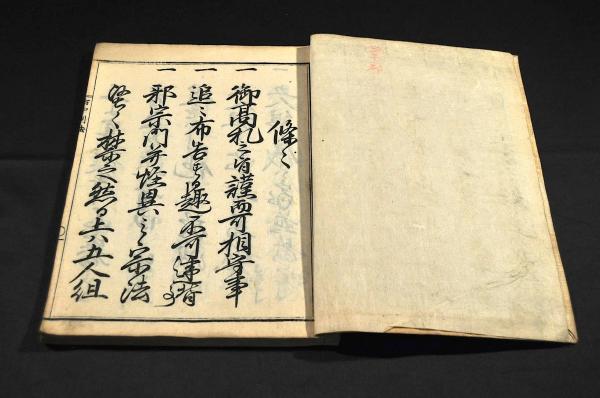 條々
一 御高札之旨謹而可相守事
一 追々布告する趣不可違背事
一 邪宗門并怪異之宗法
堅く禁之然る上ハ五人組